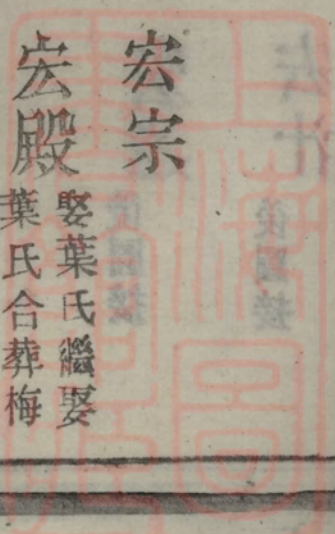 宏宗
宏殿
娶葉氏繼娶
葉氏合葬梅